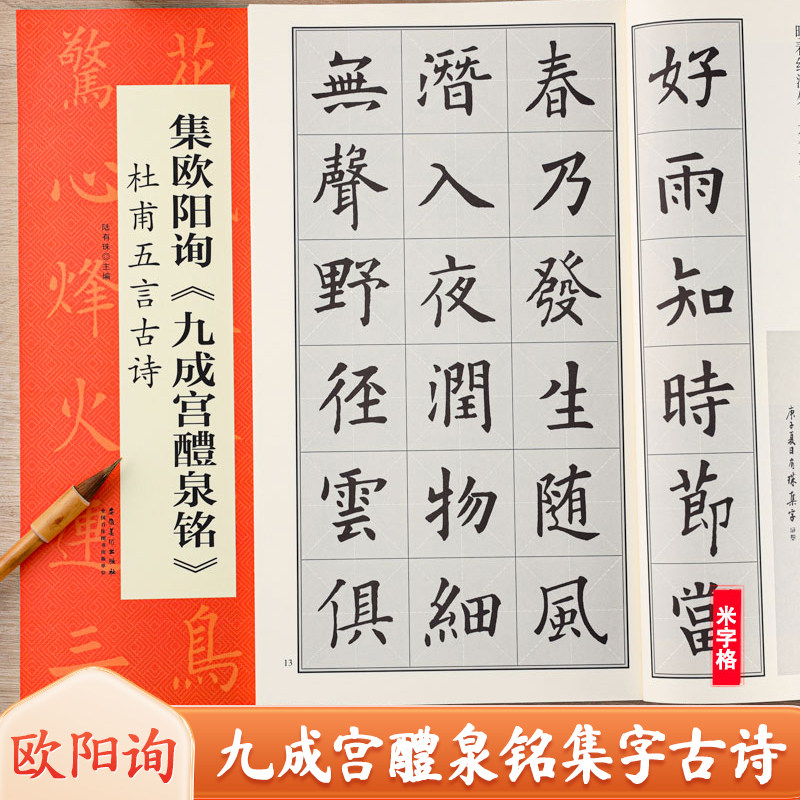 花
鳥
驚心烽火連三
集欧阳询《九成宫醴泉铭》
杜甫五言古诗
陆有珠◎主编
安徽美术出版社
中国百佳图书出版单位
好雨知時節當
春乃發生随風
潛入夜潤物細
無聲野径雲俱
13
庚子夏日有珠集字
米字格
欧阳询
九成宫醴泉铭集字古诗